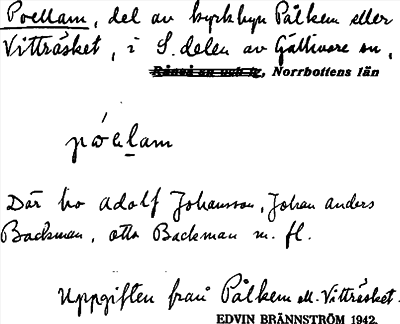 Poellam, del av kyrkbyn Pålkem eller
Vitträsket, i S. delen av Gällivare sn,
Råneå sn och tg, Norrbottens län
póeḷam
Där bo Adolf Johansson, Johan Anders
Backman, Otto Backman m. fl.
Uppgiften från Pålkem ell. Vitträsket.
EDVIN BRÄNNSTRÖM 1942.